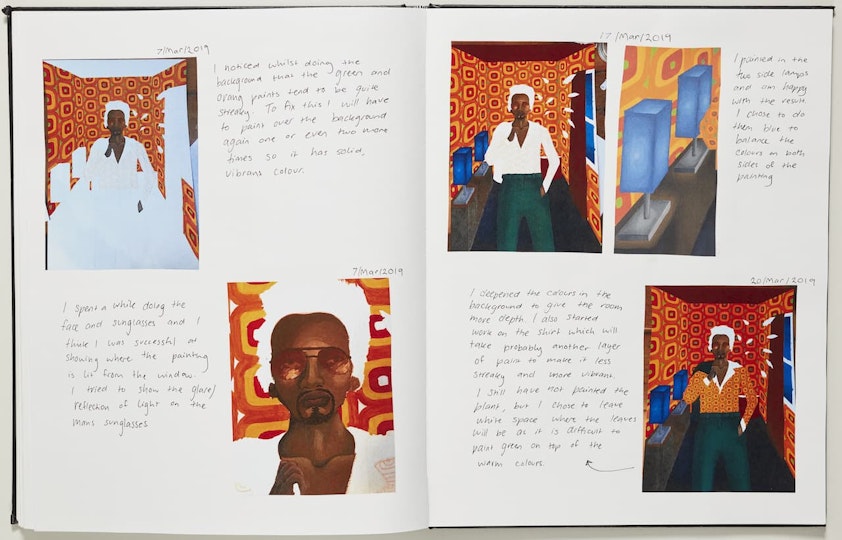 7/Mar/2019
I noticed whilst doing the
background that the green and
orang paints tend to be quite
streaky. To fix this I will have
to paint over the background
again one or even two more
times so it has solid,
vibrant colour.
7/Mar/2019
I spent a while doing the
face and sunglasses and I
think I was successful at
showing where the painting
is lit from the window.
I tried to show the glare/
reflection of light on the
mans sunglasses
17/Mar/2019
I painted in the
two side lamps
and am happy
with the result.
I chose to do
them blue to
balance the
colours on both
sides of the
painting
20/Mar/2019
I deepened the colours in the
background to give the room
more depth. I also started
work on the shirt which will
take probably another layer
of paint to make it less
streaky and more vibrant.
I still have not painted the
plant, but I chose to leave
white space where the leaves
will be as it is difficult to
paint green on top of the
warm colours.